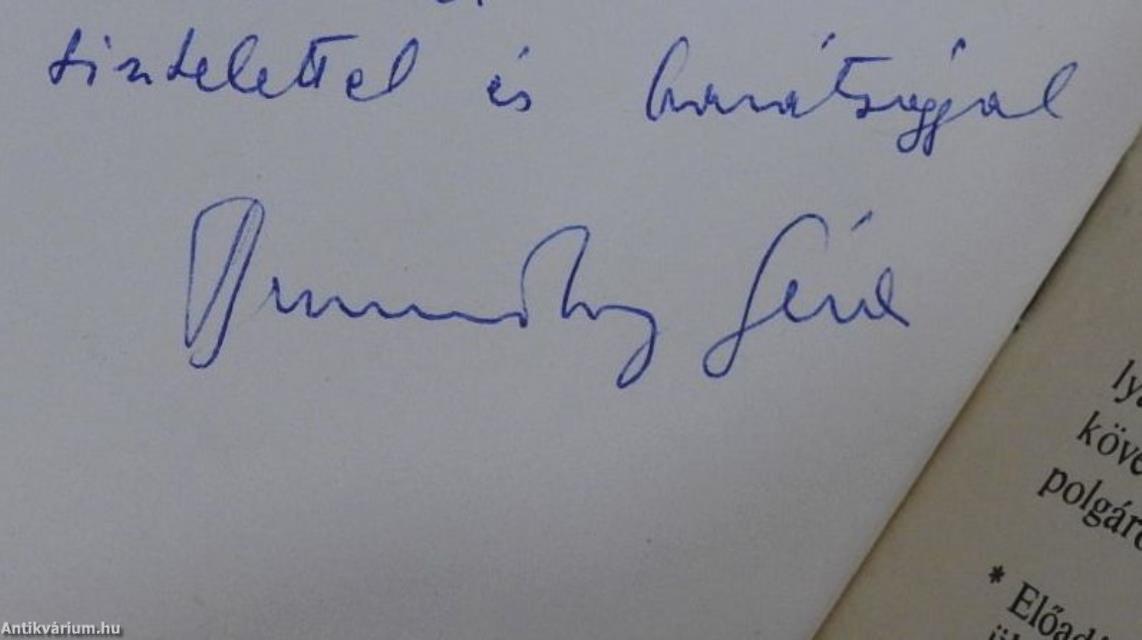 tisztelettel és barátsággal
Géza
lya
köve
polgáro
* Előad
Antikvárium.hu